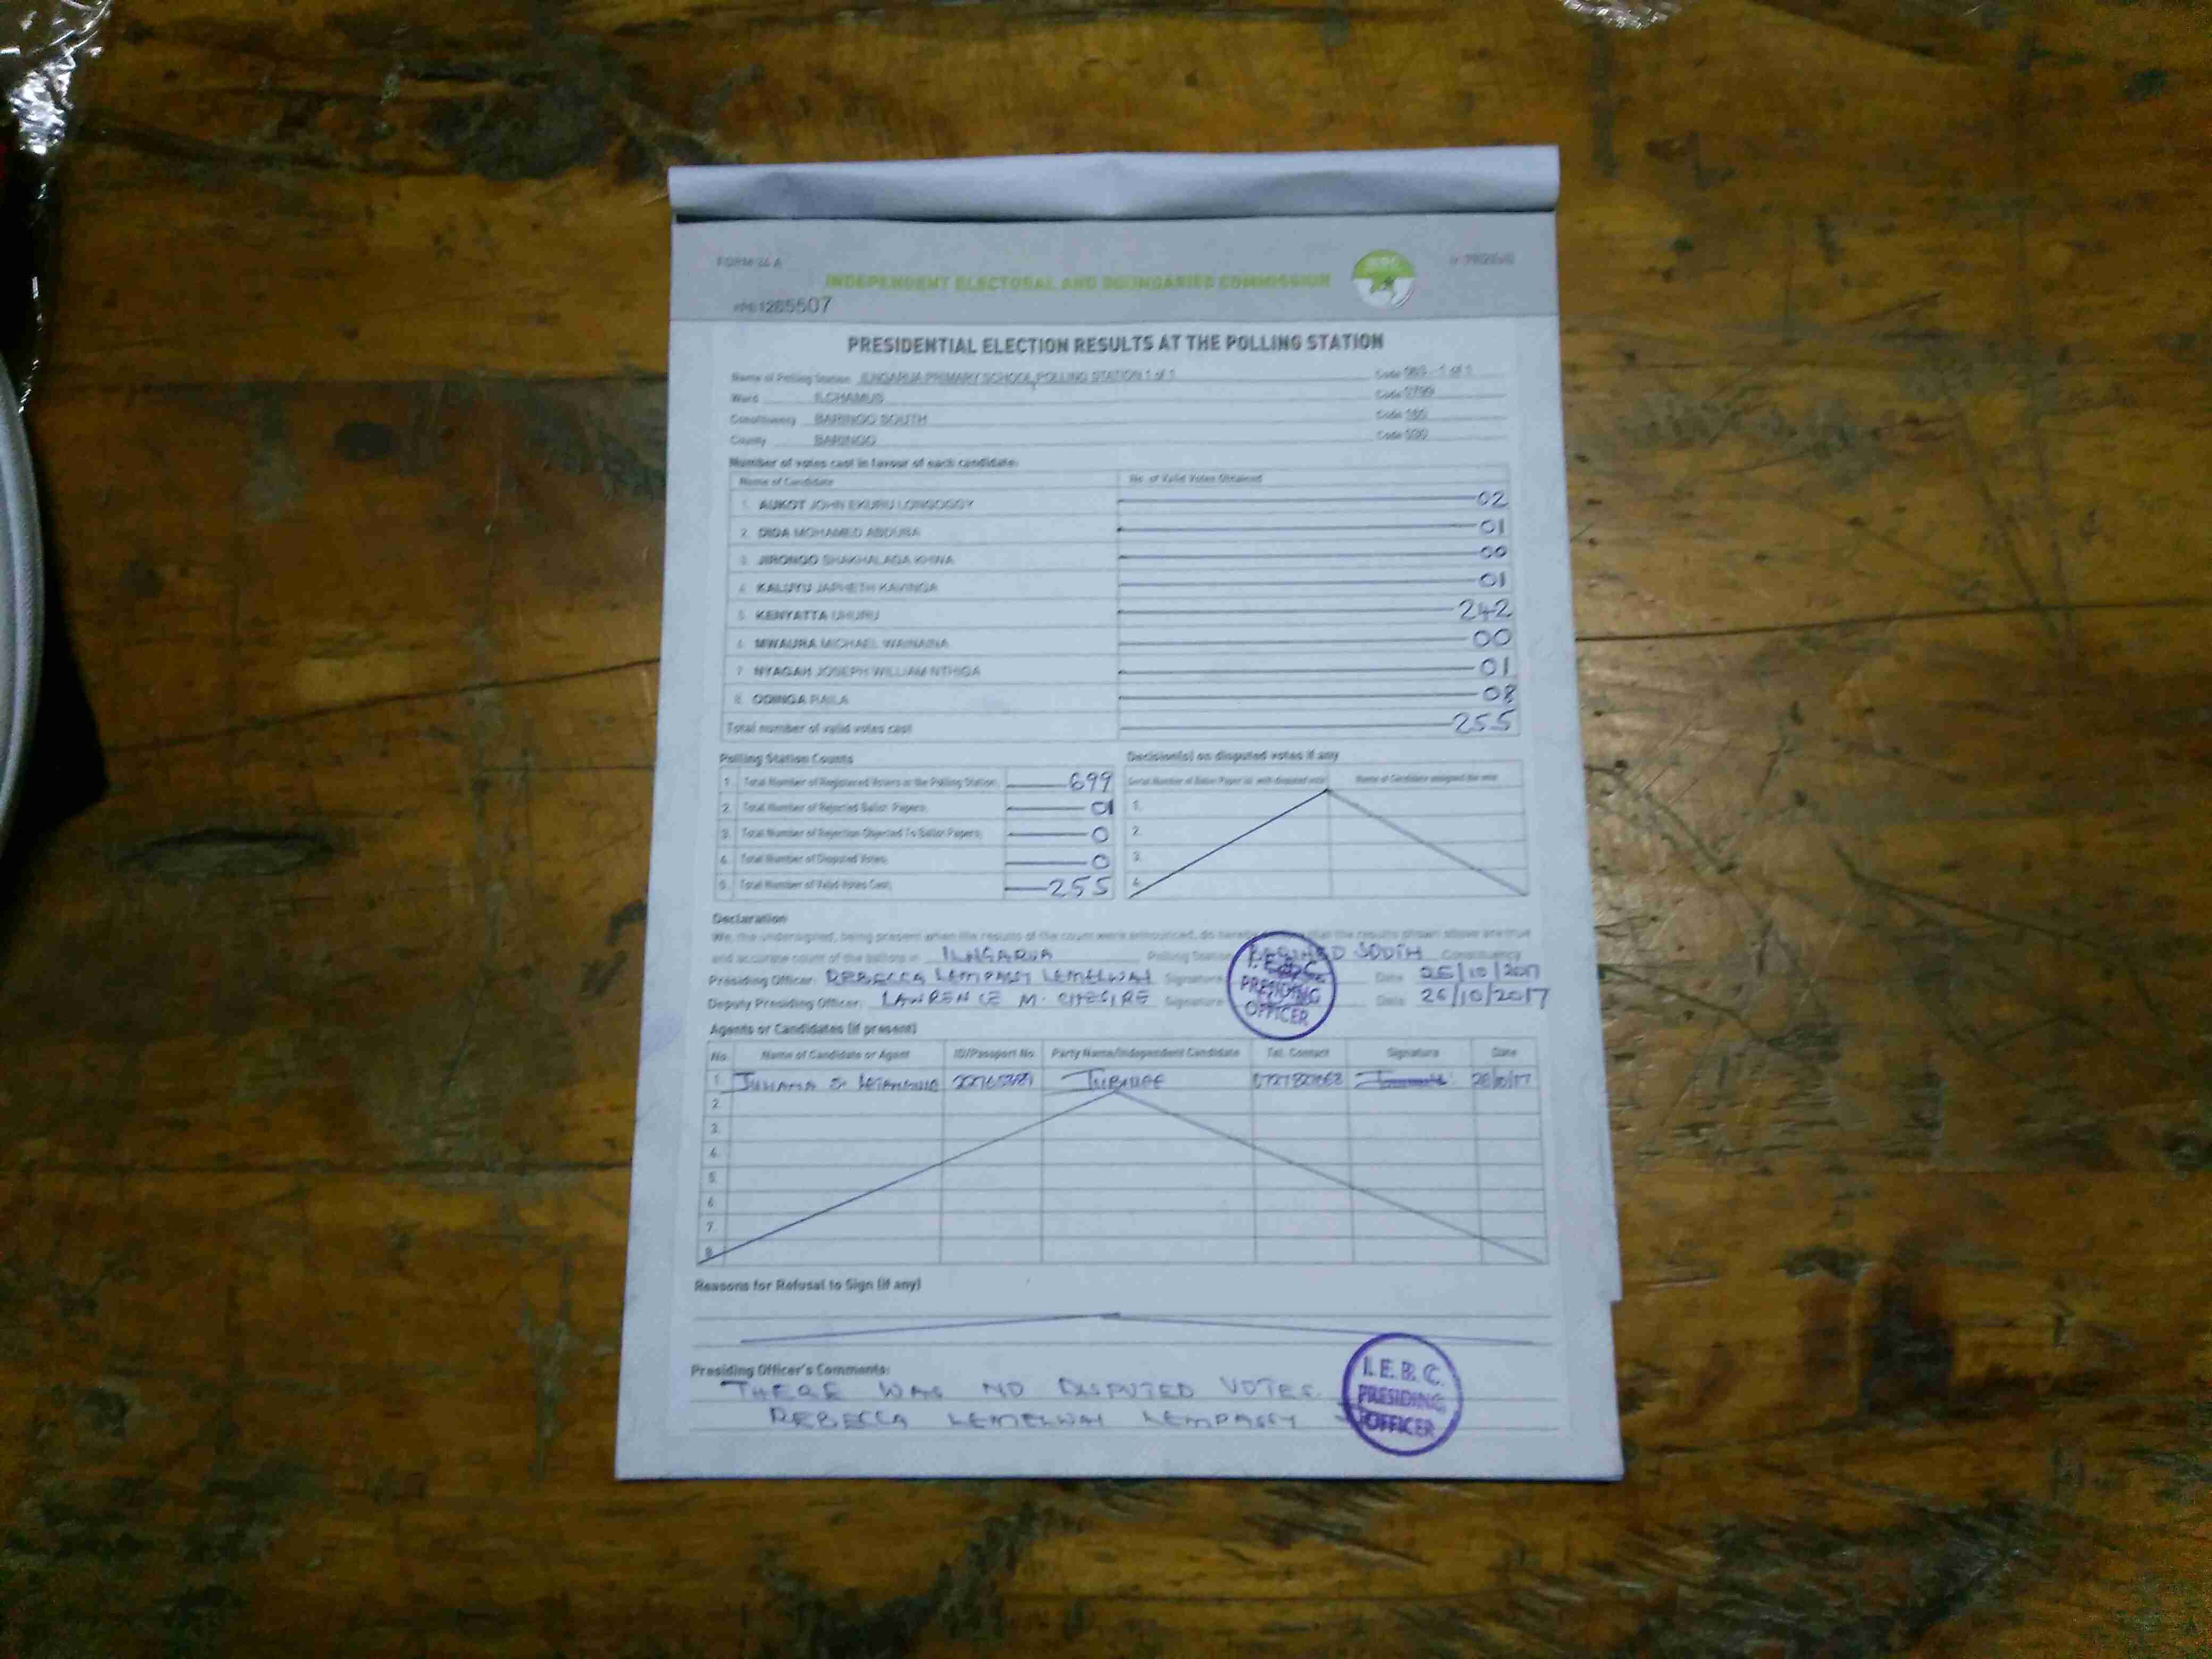 FORM 34 A
INDEPENDENT ELECTORAL AND BOUNDARIES COMMISSION
1265507
PRESIDENTIAL ELECTION RESULTS AT THE POLLING STATION
Name of Polling Station ILNGARUA PRIMARY SCHOOL POLLING STATION 1 of 1 Code 1 of 1
Ward ILCHAMUS Code 0799
Constituency BARINGO SOUTH Code
County BARINGO Code
Number of votes cast in favour of each candidate:
Name of Candidate No. of Valid Votes Obtained
1. AUKOT JOHN EKURU LONGOGGY 02
2. DIDA MOHAMED ABDUBA 01
3. JIRONGO SHAKHALAGA KHWA 00
4. KALUYU JAPHETH KAVINGA 01
5. KENYATTA UHURU 242
6. MWAURA MICHAEL WAINAINA 00
7. NYAGAH JOSEPH WILLIAM NTHIGA 01
8. ODINGA RAILA 08
Total number of valid votes cast 255
Polling Station Counts
1. Total Number of Registered Voters in the Polling Station 699
2. Total Number of Rejected Ballot Papers 01
3. Total Number of Rejection Objected To Ballot Papers 0
4. Total Number of Disputed Votes 0
5. Total Number of Valid Votes Cast 255
Decision(s) on disputed votes if any
Serial Number of Ballot Paper (s) with disputed vote Name of Candidate assigned the vote
1.
2.
3.
4.
Declaration
We, the undersigned, being present when the results of the count were announced, do hereby that the results shown above are true
and accurate count of the ballots in ILNGARUA Polling Station BARINGO SOUTH Constituency
Presiding Officer: REBECCA LEMPASSY LEMELWAI Signature Date 26/10/2017
Deputy Presiding Officer: LAWRENCE M. CHESIRE Signature Date 26/10/2017
I.E.B.C.
PRESIDING
OFFICER
Agents or Candidates (if present)
No. Name of Candidate or Agent ID/Passport No. Party Name/Independent Candidate Tel. Contact Signature Date
1. JUBILEE 26/10/17
2.
3.
4.
5.
6.
7.
8.
Reasons for Refusal to Sign (if any)
Presiding Officer's Comments:
THERE WAS NO DISPUTED VOTES.
REBECCA LEMELWAI LEMPASSY
I.E.B.C.
PRESIDING
OFFICER